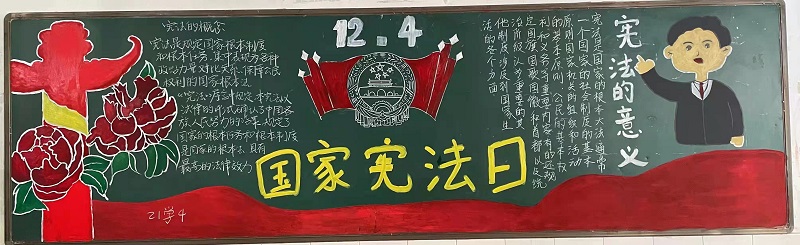 宪法的概念
宪法是规定国家根本制度
和根本任务、集中表现各种
政治力量对比关系、保障公民
权利的国家根本法
21学4
12.4
国家宪法日
宪法是国家的根本大法通常
一个国家的社会制度的基本
原则国家机关的组织和活动
的基本原则、公民的基本权
利和义务等重要内容有的还规
定国旗国歌国徽和首都以及统
治阶级认为重要的其
他制度涉及到国家生
活的各个方面
宪法的意义